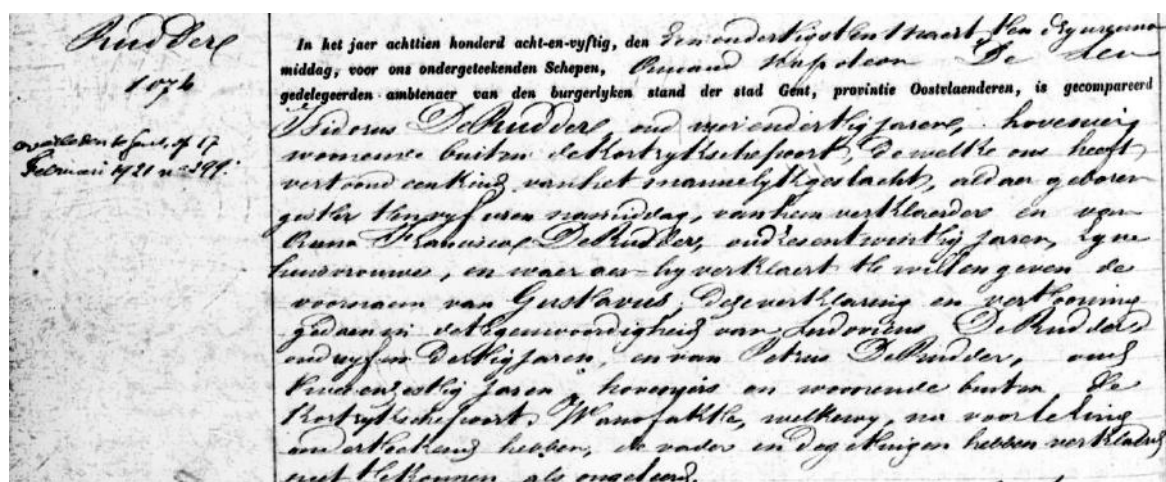 Rudder
1074
overleden te Gent, 17
Februari 1921 n° 599.
In het jaer achttien honderd acht-en-vyftig, den een endertigsten Maert ten dry uren na
middag, voor ons ondergeteekenden Schepen, Armand Napoleon De
gedelegeerden ambtenaer van den burgerlyken stand der stad Gent, provintie Oostvlaenderen, is gecompareerd
Isidorus DeRudder, oud endertig jaren, hovenier
woonende buiten de Kortrykschepoort, dewelke ons heeft
vertoond een kind van het mannelyk geslacht, aldaer geboren
gister ten vyf uren namiddag, van hem verklaerder en van
Anna Francisca DeRudder, oud zesentwintig jaren, zyne
huisvrouwe, en waer aen hy verklaert te willen geven de
voornaem van Gustavus. Deze verklaring en vertooning
gedaen in de tegenwoordigheid van Ludovicus DeRudder
oud vyf en dertig jaren, en van Petrus DeRudder, oud
tweeenzestig jaren, hoveniers en woonende buiten de
Kortrykschepoort. Waeraf akte, welke wy, na voorlezing
onderteekend hebben, de vader en de getuigen hebben verklaerd
niet te konnen als ongeleerd.